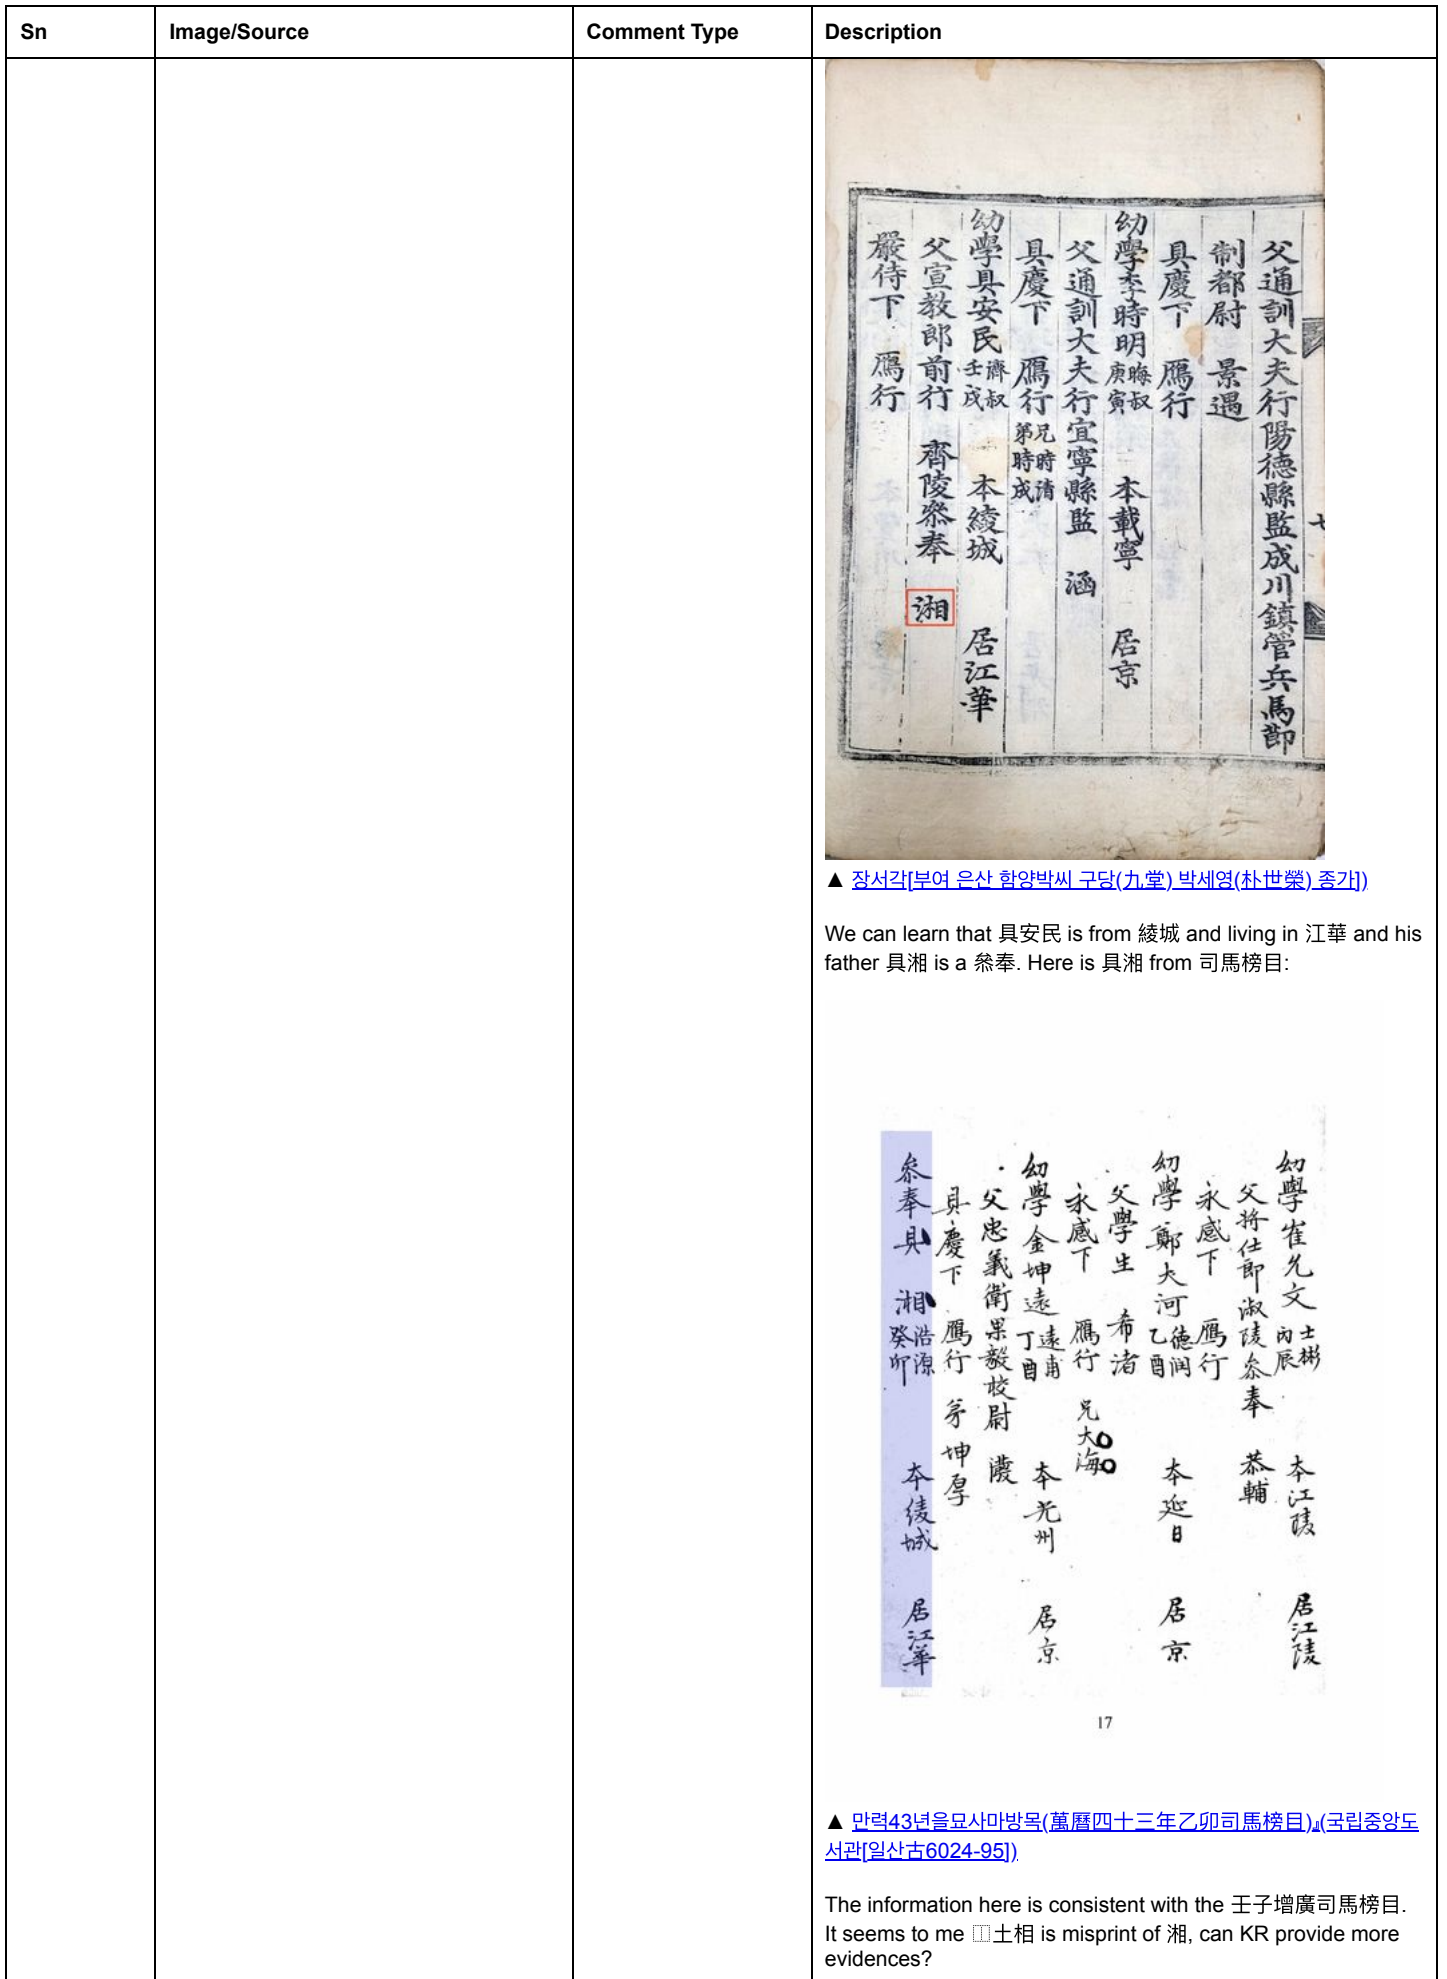 Sn
Image/Source
Comment Type
Description
父通訓大夫行陽德縣監成川鎮管兵馬節
制都尉 景遇
具慶下 鴈行
幼學李時明 晦叔 庚寅 本載寧 居京
父通訓大夫行宜寧縣監 涵
具慶下 鴈行 兄時清 弟時成
幼學具安民 濟叔 壬戌 本綾城 居江華
父宣教郎前行 齊陵叅奉 湘
嚴侍下 鴈行
▲ 장서각[부여 은산 함양박씨 구당(九堂) 박세영(朴世榮) 종가])
We can learn that 具安民 is from 綾城 and living in 江華 and his
father 具湘 is a 叅奉. Here is 具湘 from 司馬榜目:
幼學崔允文 士彬 丙辰 本江陵 居江陵
父將仕郎淑陵叅奉 恭輔
永感下 鴈行
幼學鄭大河 德润 乙酉 本延日 居京
父學生 希渚
永感下 鴈行 兄大海
幼學金坤遠 遠甫 丁酉 本光州 居京
父忠義衛果毅校尉
具慶下 鴈行 弟坤厚
叅奉具 湘 浩源 癸卯 本綾城 居江華
17
▲ 만력43년을묘사마방목(萬曆四十三年乙卯司馬榜目)』(국립중앙도
서관[일산古6024-95])
The information here is consistent with the 壬子增廣司馬榜目.
It seems to me ⿰土相 is misprint of 湘, can KR provide more
evidences?